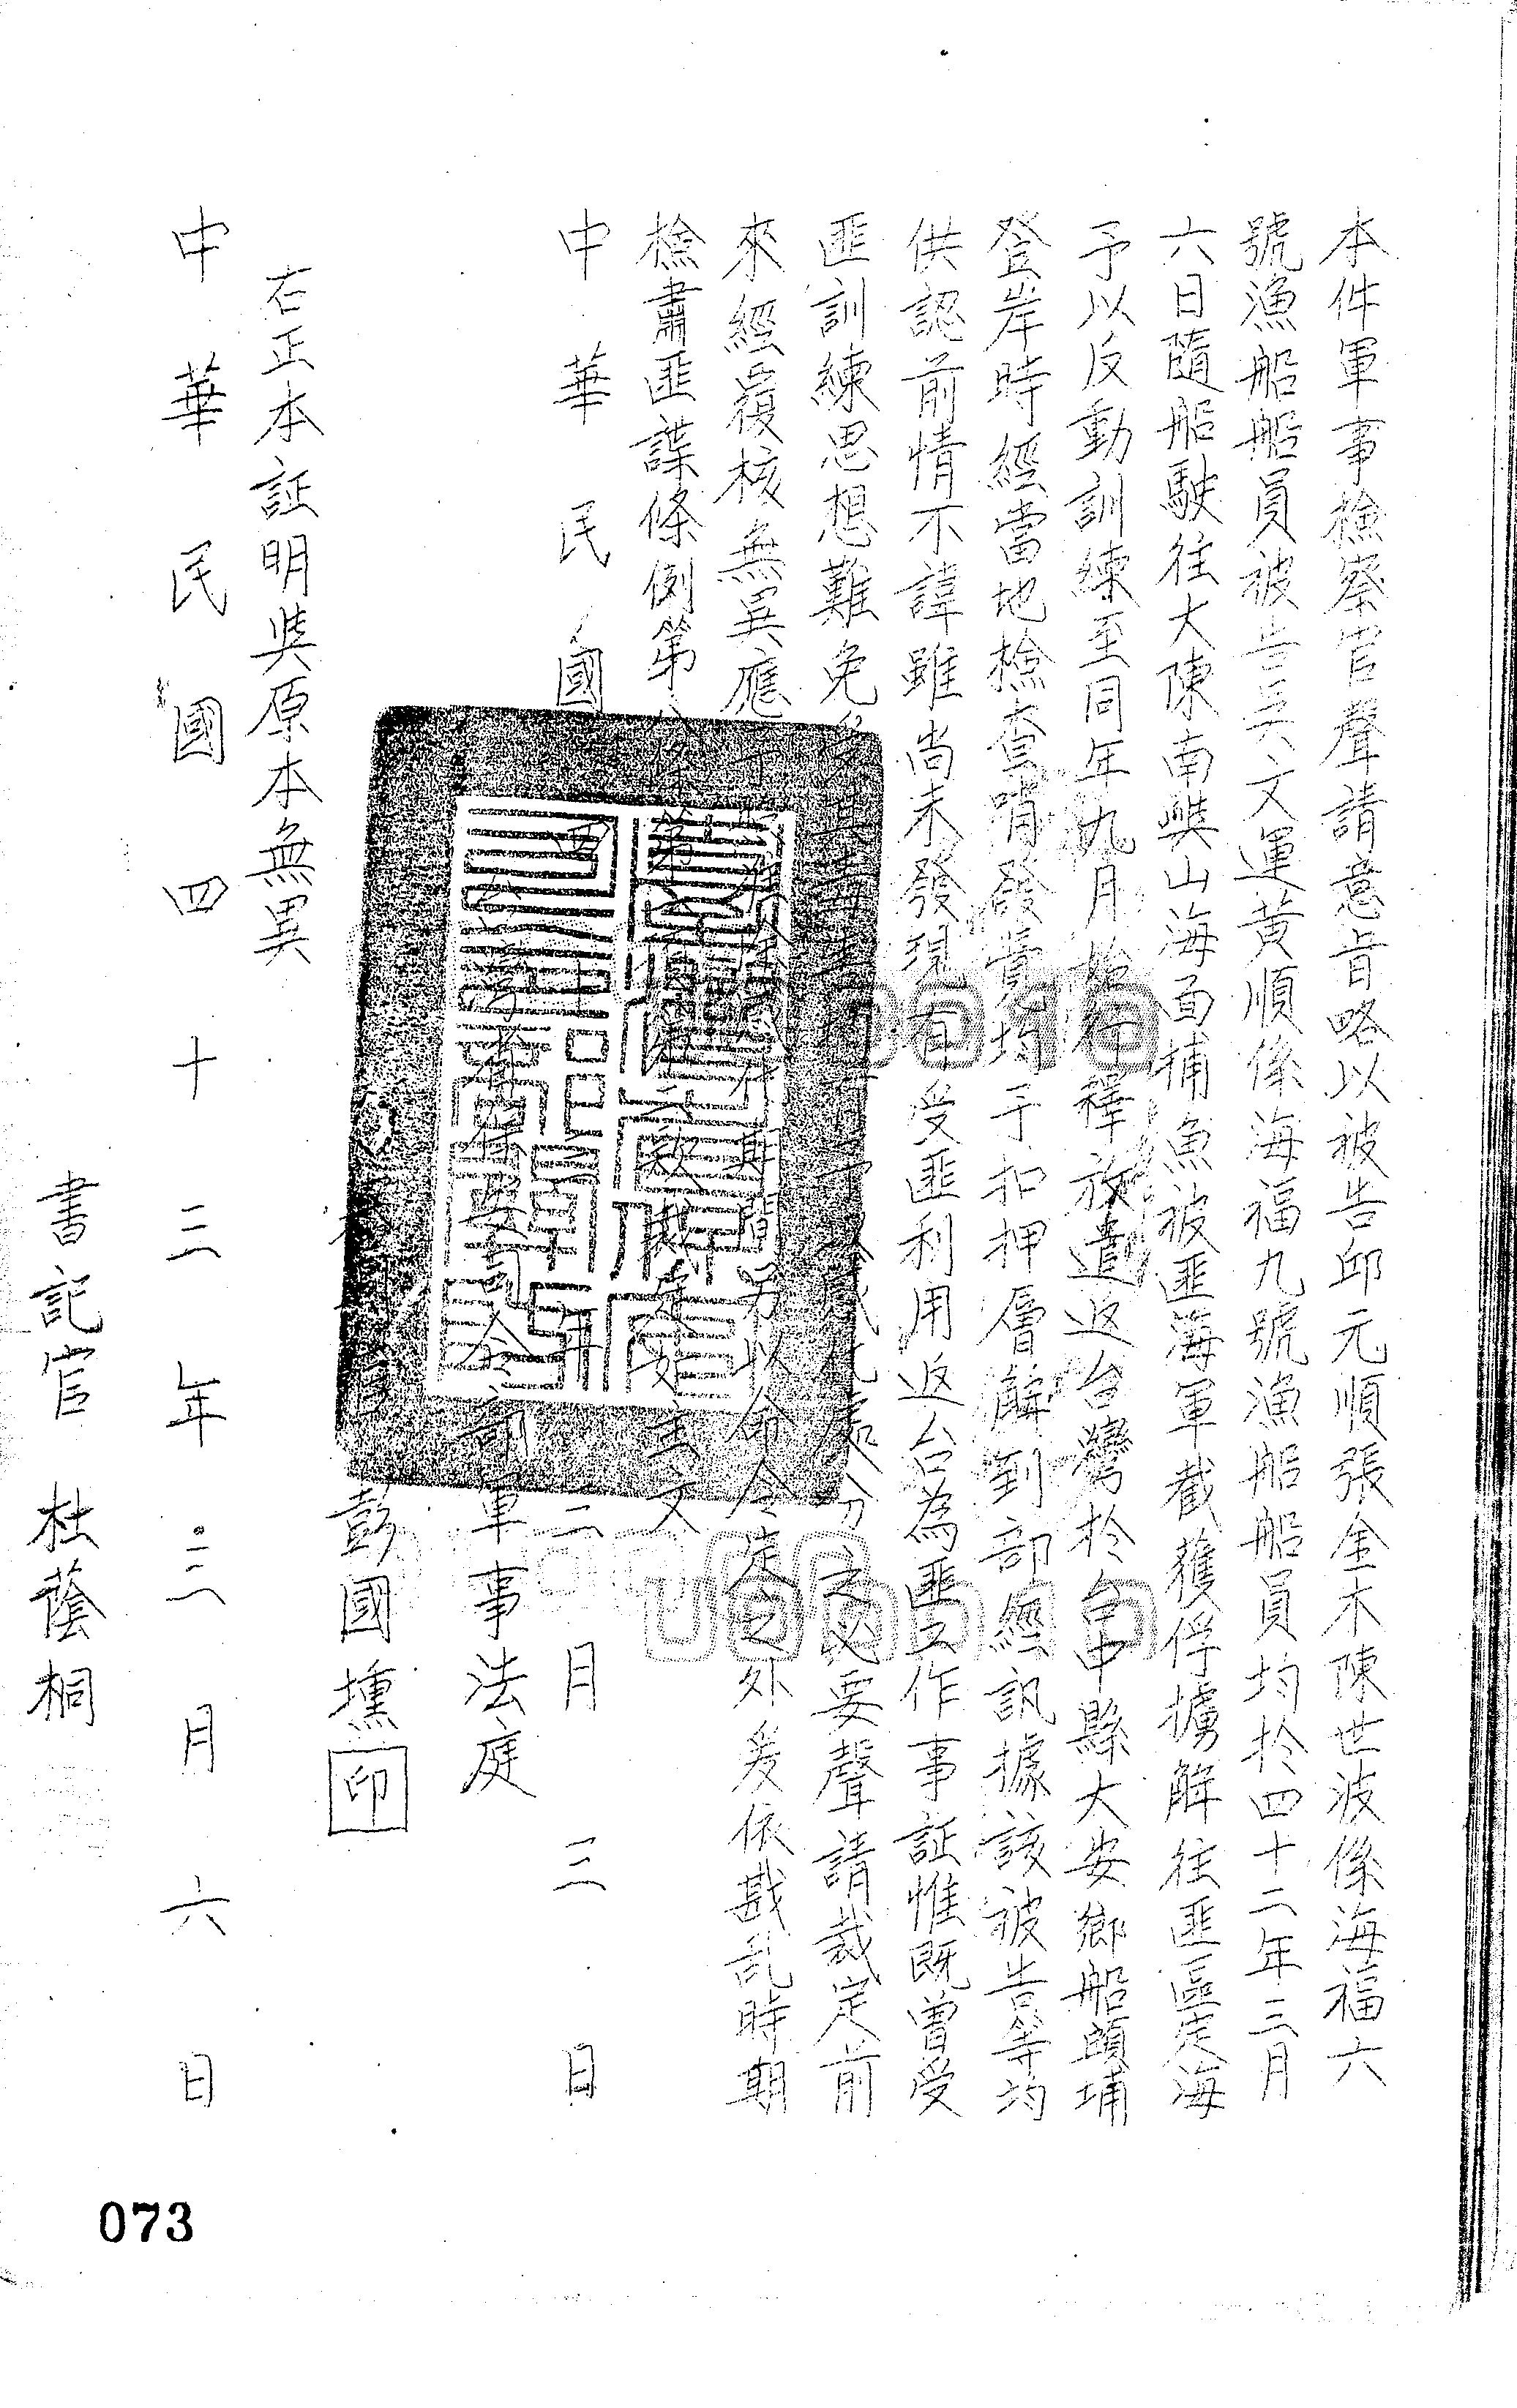 本件軍事檢察官聲請意旨略以被告邱元順張金木陳世波係海福六
號漁船船員被告吳文運黃順係海福九號漁船船員均於四十二年三月
六日隨船駛往大陳南與山海面捕魚被匪海軍截獲俘擄解往匪區定海
予以反動訓練至同年九月始行釋放遣返台灣於台中縣大安鄉船頭埔
登岸時經當地檢查哨發覺均予扣押層解到部經訊據該被告等均
供認前情不諱雖尚未發現有受匪利用返台為匪工作事証惟既曾受
匪訓練思想難免受其毒素 感化處分之必要聲請裁定前
來經覆核無異應 期間另以命令定之外爰依戡亂時期
檢肅匪諜條例第八條第 款裁定如主文
中華民國四十三年三月三日
台灣省保安司令部軍事法庭
彭國壎印
右正本証明與原本無異
中華民國四十三年三月六日
書記官 杜蔭桐
073